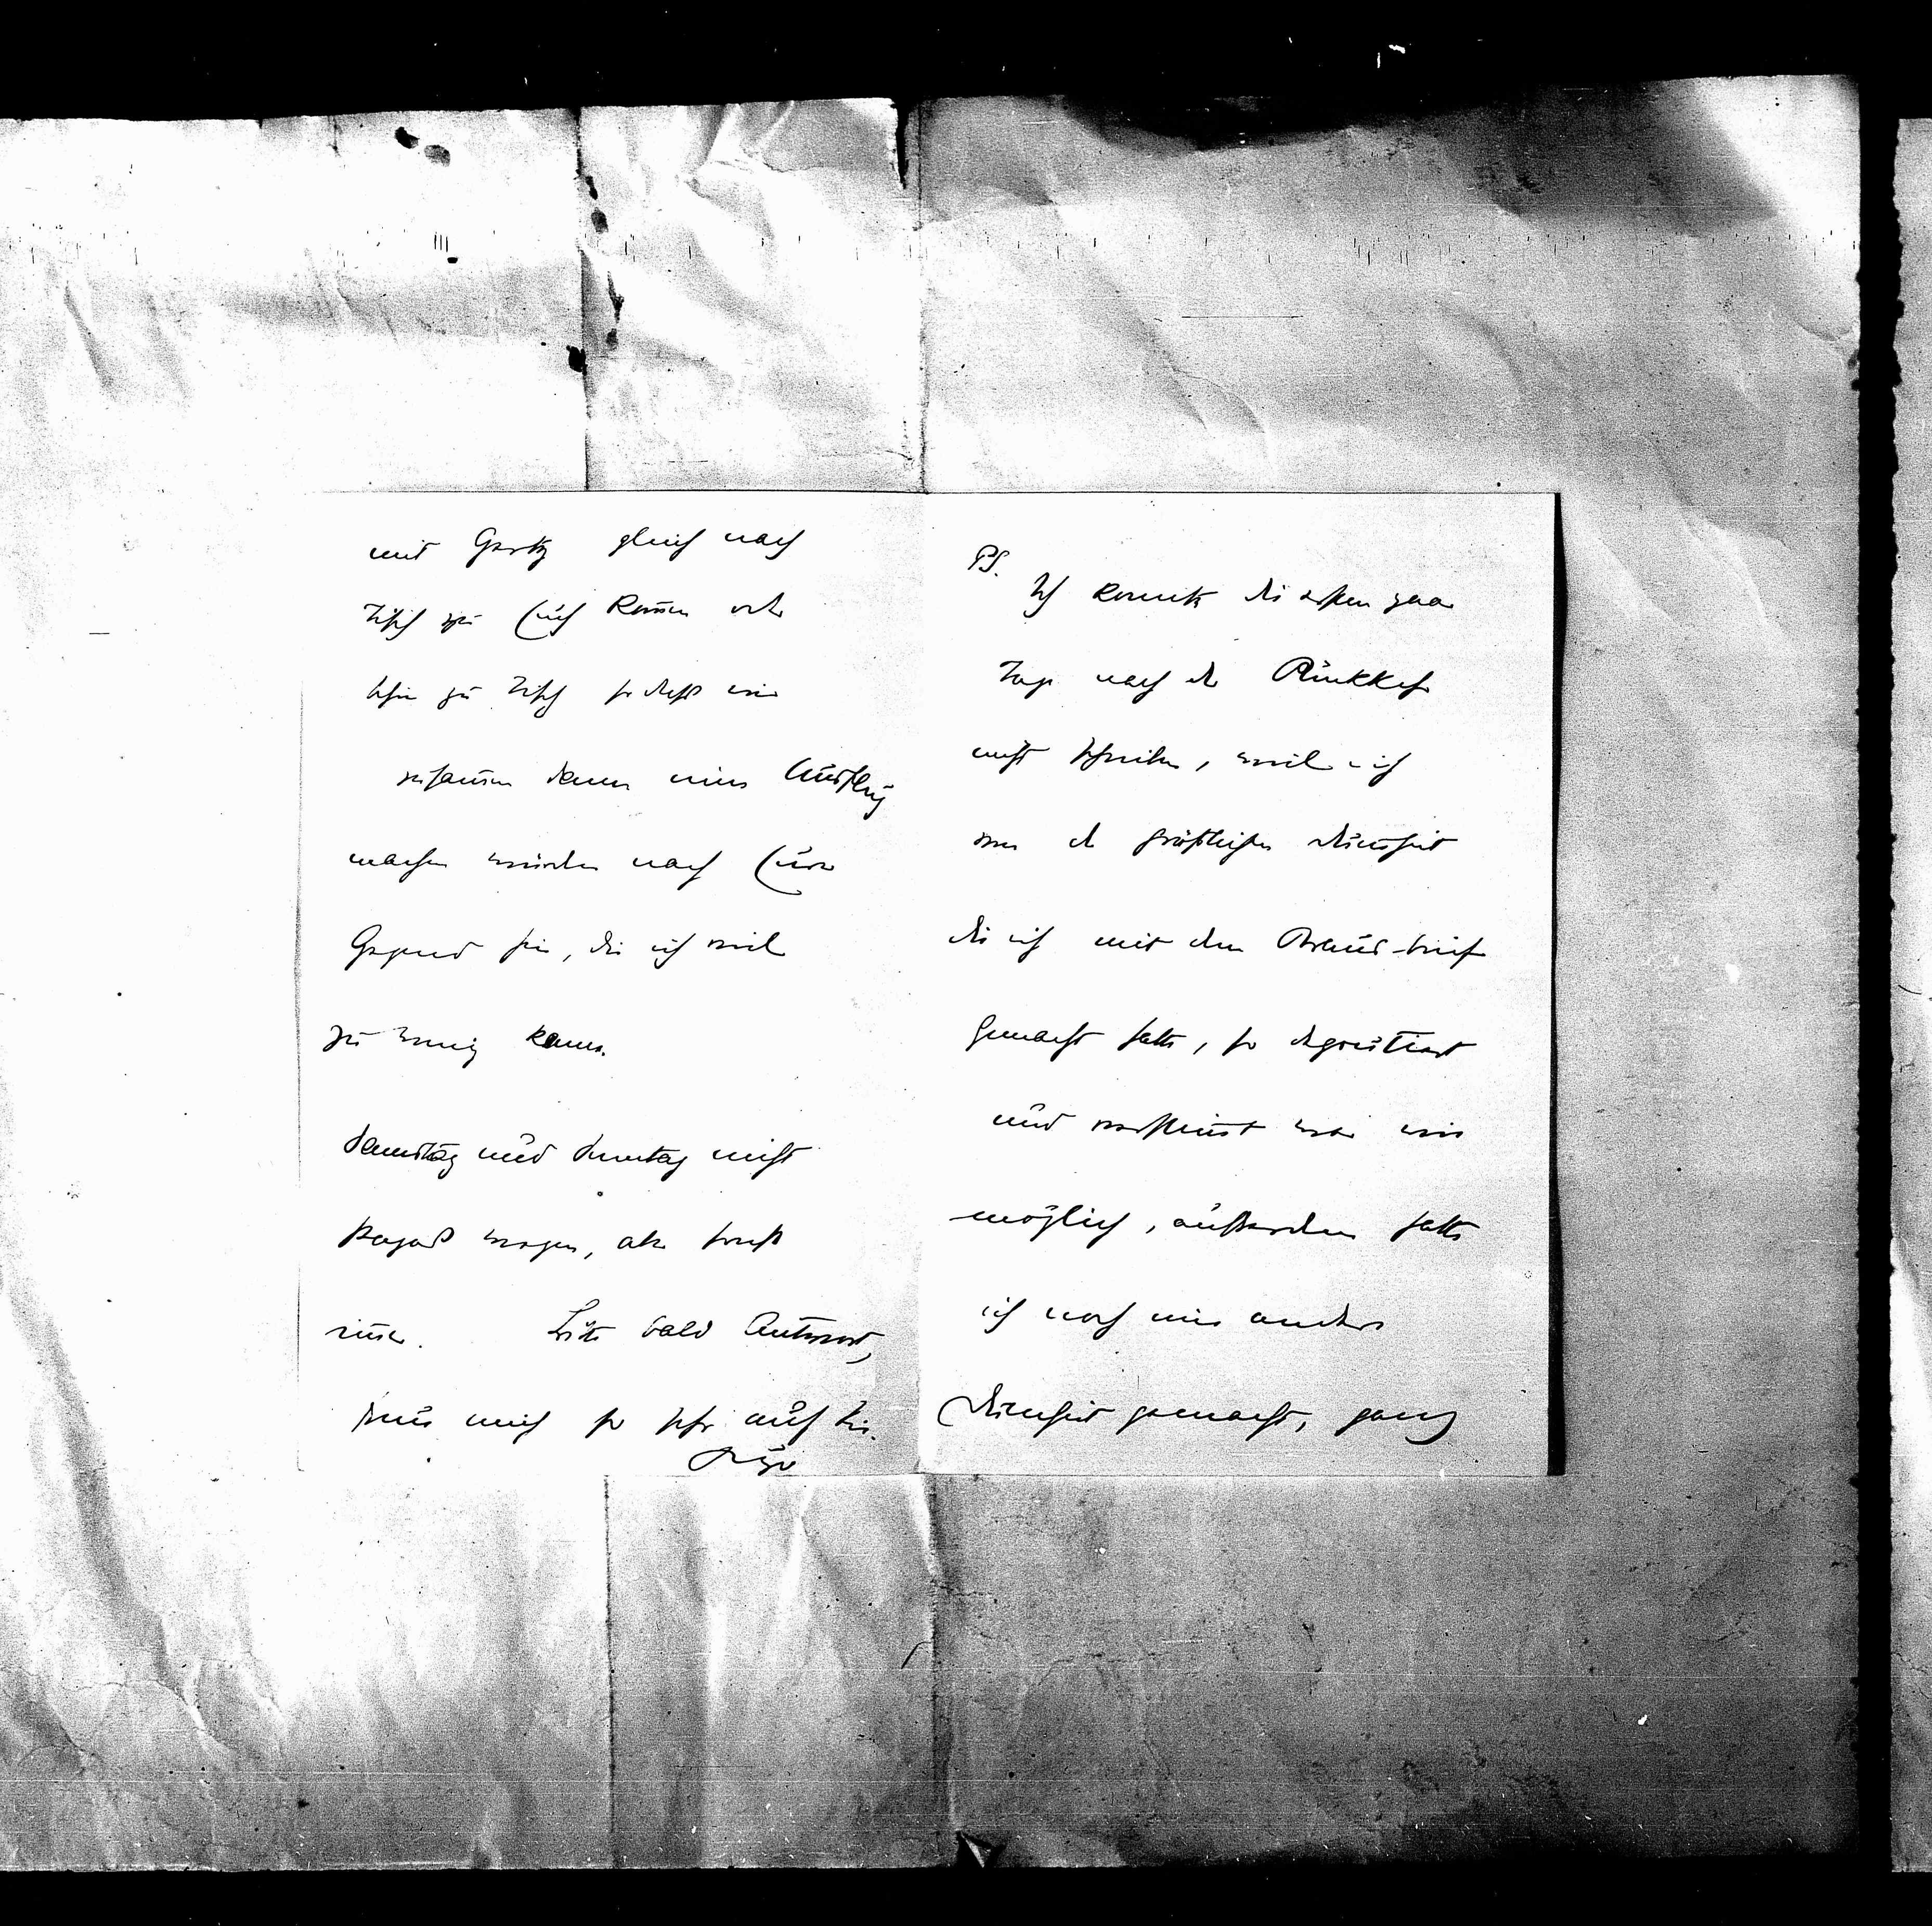 mit Gerty gleich nach
Tisch zu Euch komen oder
schon zu Tisch so dass wir
zusamen dann einen Ausflug
machen würden nach Eurer
Gegend hin, die ich viel
zu wenig kenne.
Samstag und Sonntag nicht
wegen, aber sonst
immer. Bitte bald Antwort,
freue mich so sehr auf Sie.
Hugo
PS.
Ich konnte die ersten paar
Tage nach der Rückkehr
nicht schreiben, weil ich
von der grässlichen Dummheit
die ich mit dem Brand-brief
gemacht hatte, so degoutiert
und verstimmt war wie
möglich, ausserdem hatte
ich noch eine andere
Dummheit gemacht, ganz